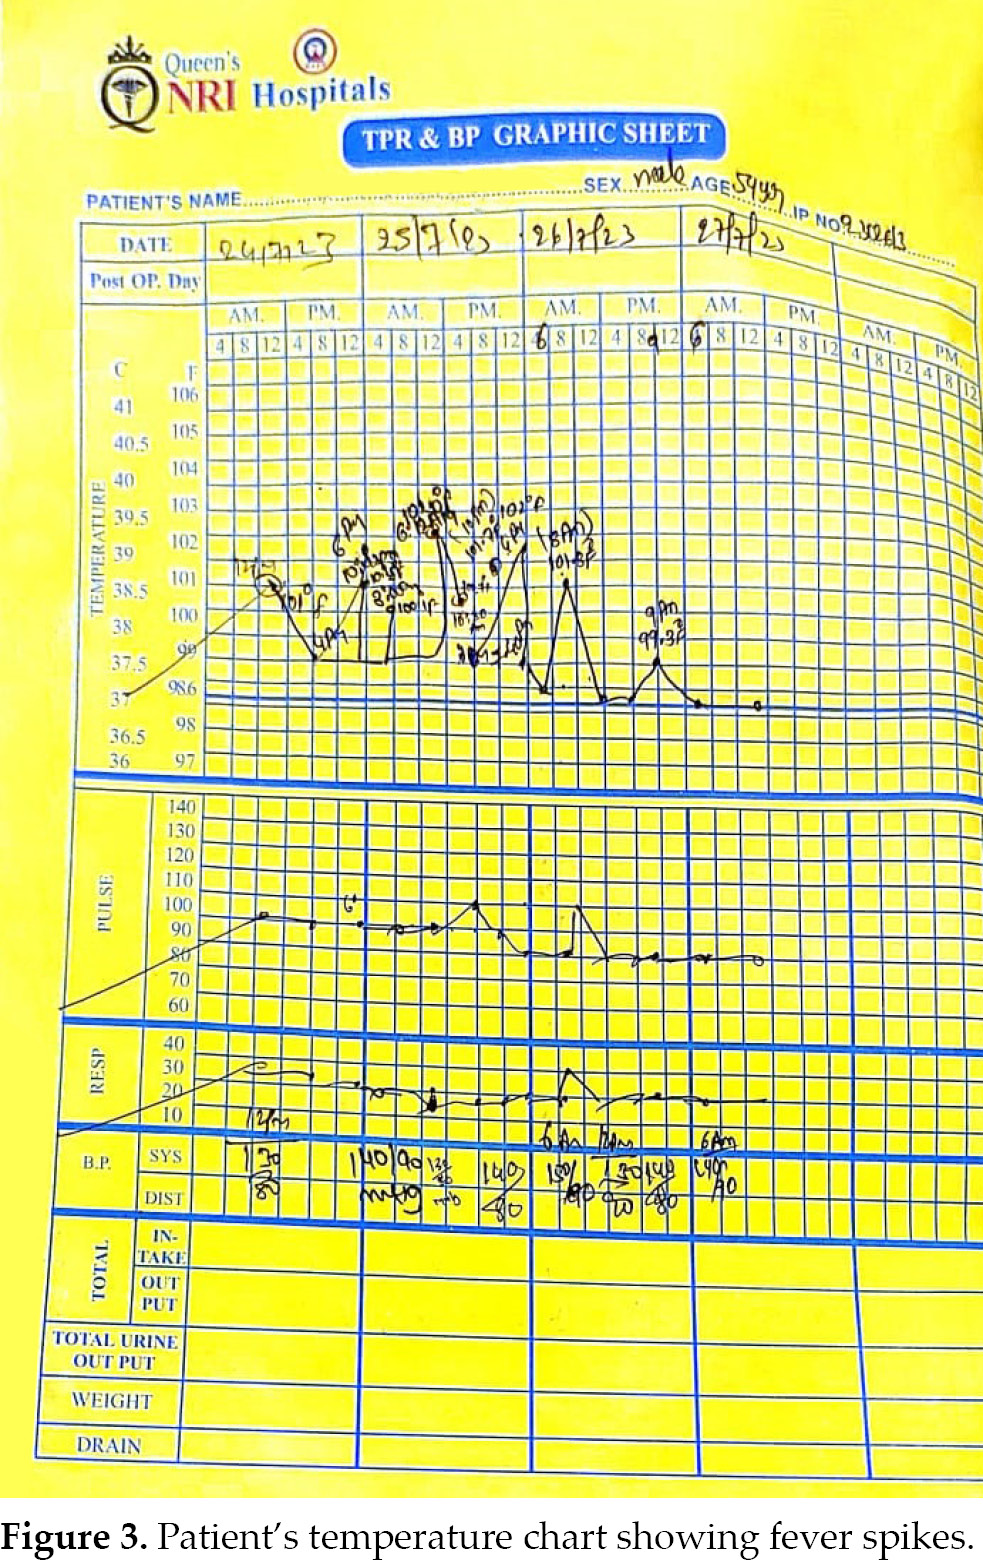 Queen's
NRI Hospitals
TPR & BP GRAPHIC SHEET
PATIENT'S NAME SEX male AGE 54yr IP NO
DATE 24/7/23 25/7/23 26/7/23 27/7/23
Post OP. Day
AM. PM. AM. PM. AM. PM. AM. PM. AM. PM.
4 8 12 4 8 12 4 8 12 4 8 12 6 8 12 4 8 9 12 6 8 12 4 8 12 4 8 12 4 8 12
TEMPERATURE
C F
106
41
105
40.5
104
40
103
39.5
102
39
101
38.5
100
38
99
37.5
98.6
37
98
36.5
36 97
6 AM
101°F
4PM
102°F
(8AM)
101.3F
9AM
99.3F
PULSE
140
130
120
110
100
90
80
70
60
RESP
40
30
20
10
B.P.
SYS
DIST
12PM
130/80
140/90
mmHg
140/80
6AM
140/80
6AM
140/90
TOTAL
IN-
TAKE
OUT
PUT
TOTAL URINE
OUT PUT
WEIGHT
DRAIN
Figure 3. Patient's temperature chart showing fever spikes.